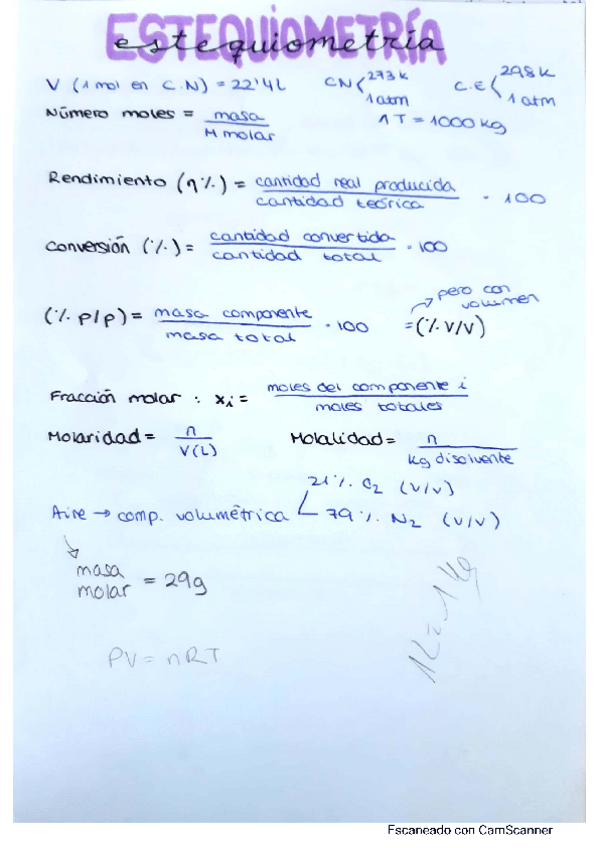 ESTEQUIOMETRÍA
estequiometría
V (1 mol en C.N) = 22'4L CN < 273k 1 atm C.E < 298k 1 atm
Número moles = masa / M molar 1T = 1000 kg
Rendimiento (η%) = cantidad real producida / cantidad teórica · 100
Conversión (%) = cantidad convertida / cantidad total · 100
(% p/p) = masa componente / masa total · 100 = (% v/v) → pero con volumen
Fracción molar : xi = moles del componente i / moles totales
Molaridad = n / V(L) Molalidad = n / kg disolvente
21% C2 (v/v)
Aire → comp. volumétrica 79% N2 (v/v)
masa molar = 29g
PV = nRT
1L = 1kg
Escaneado con CamScanner